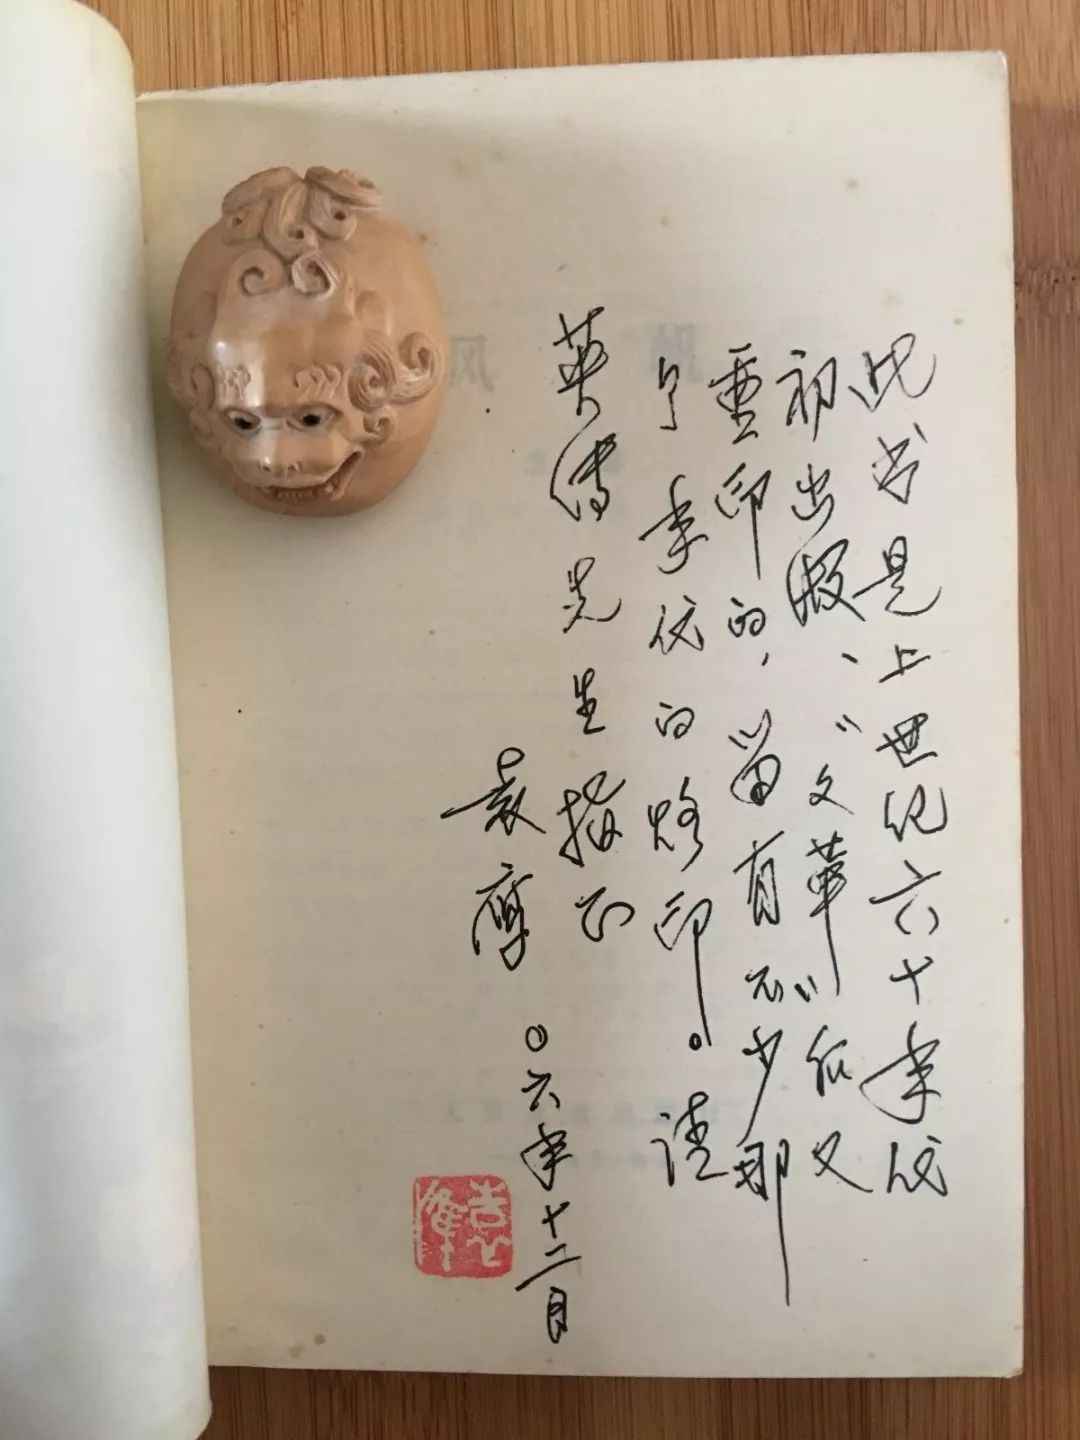 此书是上世纪六十年代
初出版、“文革”后又
重印的，留有不少那
个年代的烙印。请
英傳先生指正
袁鹰
〇六年十二月